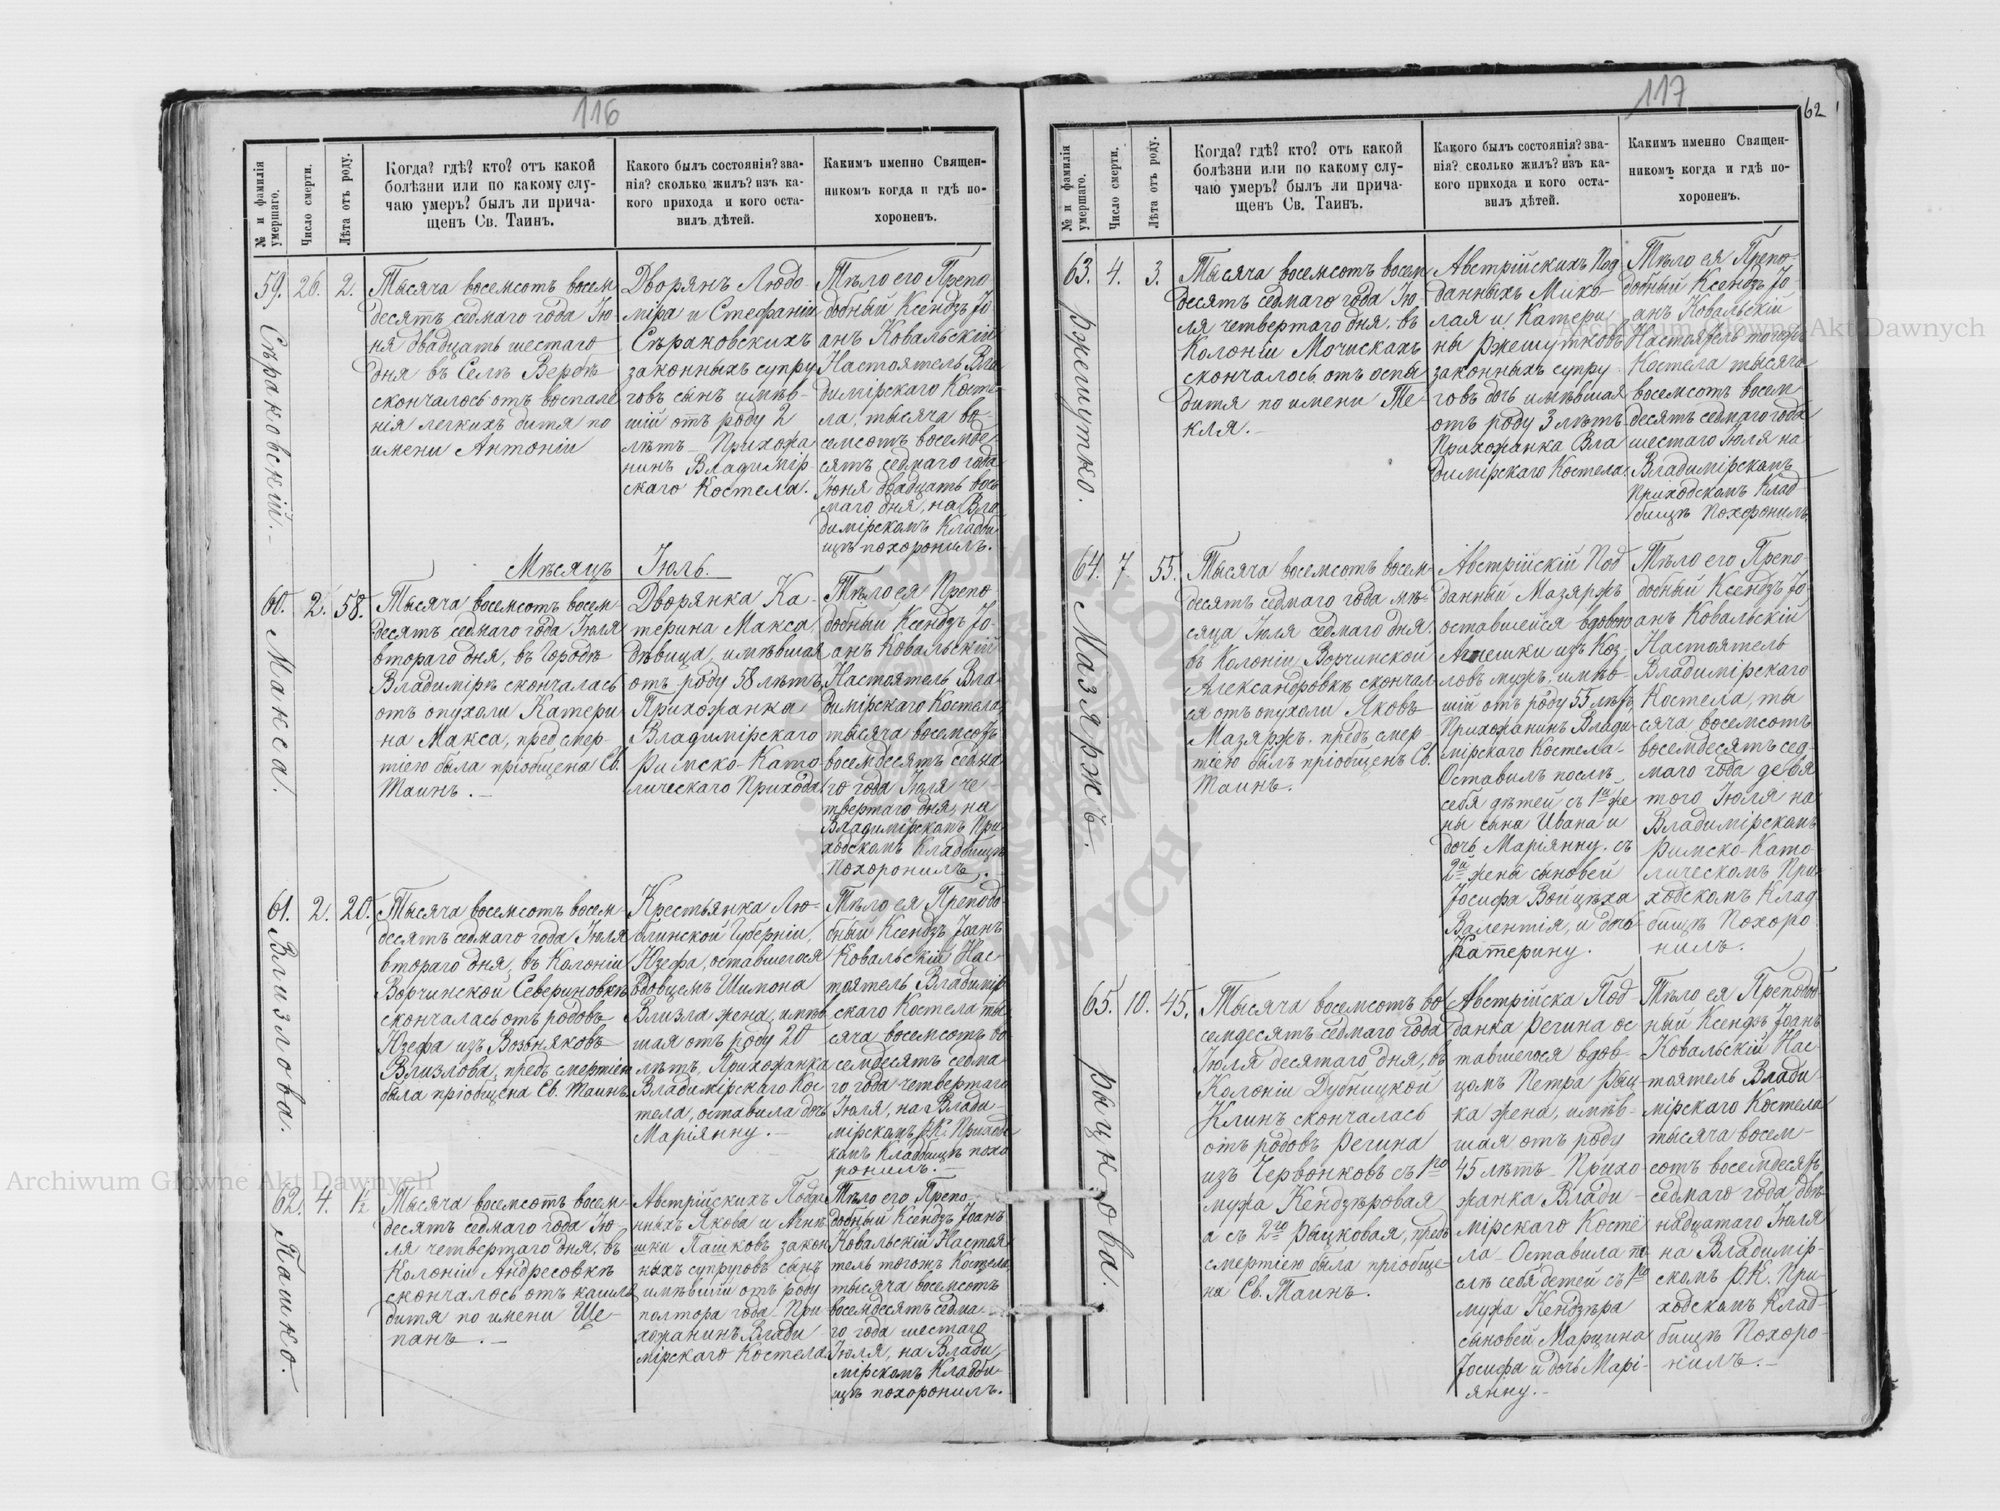 116
№ и фамилія умершаго.
Число смерти.
Лѣта отъ роду.
Когда? гдѣ? кто? отъ какой
болѣзни или по какому слу-
чаю умеръ? былъ ли прича-
щенъ Св. Таинъ.
Какого былъ состоянія? зва-
нія? сколько жилъ? изъ ка-
кого прихода и кого оста-
вилъ дѣтей.
Какимъ именно Священ-
никомъ когда и гдѣ по-
хороненъ.
59. Сѣраковскій.
26.
2.
Тысяча восемсотъ восем
десятъ седмаго года Ію
ня двадцать шестаго
дня въ Селѣ Вербѣ
скончалось отъ воспале
нія легкихъ дитя по
имени Антоній
Дворянъ Людо-
міра и Стефаніи
Сѣраковскихъ
законныхъ супру
говъ сынъ имѣв-
шій отъ роду 2
лѣтъ. Прихожа
нинъ Владимір
скаго Костела.
Тѣло его Препо
добный Ксендзъ Іо
анъ Ковальскій
Настоятель Вла
димірскаго Косте-
ла, тысяча во-
семсотъ восемде
сятъ седмаго года
Іюня двадцать вось
маго дня, на Вла
димірскомъ Кладби
щѣ похоронилъ.
Мѣсяцъ Іюль.
60. Макса.
2.
58.
Тысяча восемсотъ восем
десятъ седмаго года Іюля
втораго дня, въ Городѣ
Владимірѣ скончалась
отъ опухоли Катери
на Макса, пред смер-
тіею была пріобщена Св.
Таинъ.
Дворянка Ка-
терина Макса
дѣвица, имѣвшая
отъ роду 58 лѣтъ,
Прихожанка
Владимірскаго
Римско-Като
лическаго Прихода
Тѣло ея Препо
добный Ксендзъ Іо-
анъ Ковальскій
Настоятель Вла-
димірскаго Костела
тысяча восемсотъ
восемдесятъ седма
го года Іюля че-
твертаго дня, на
Владимірскомъ При
ходскомъ Кладбищѣ
Похоронилъ.
61. Влизлова.
2.
20.
Тысяча восемсотъ восем-
десятъ седмаго года Іюля
втораго дня, въ Колоніи
Ворчинской Севериновкѣ
скончалась отъ родовъ
Юзефа изъ Возьняковъ
Влизлова, предъ смертіею
была пріобщена Св. Таинъ.
Крестьянка Лю-
блинской Губерніи,
Юзефа, оставшегося
вдовцемъ Шимона
Влизла жена, имѣв
шая отъ роду 20
лѣтъ, Прихожанка
Владимірскаго Кос
тела, оставила дочь
Маріянну.
Тѣло ея Преподо-
бный Ксендзъ Іоанъ
Ковальскій Нас-
тоятель Владимір
скаго Костела ты
сяча восемсотъ во
семдесятъ седма-
го года четвертаго
Іюля, на Влади-
мірскомъ р.К. Приход
комъ Кладбищѣ похо
ронилъ.
62. Пашко.
4.
1½
Тысяча восемсотъ восем-
десятъ седмаго года Ію
ля четвертаго дня, въ
Колоніи Андресовкѣ
скончалось отъ кашля
дитя по имени Ще-
панъ.
Австрійскихъ Подда
нныхъ Якова и Агнѣ
шки Пашковъ закон
ныхъ супруговъ сынъ
имѣвшій отъ роду
полтора года. При
хожанинъ Влади
мірскаго Костела.
Тѣло его Препо-
добный Ксендзъ Іоанъ
Ковальскій Настоя
тель тогожъ Костела
тысяча восемсотъ
восемдесятъ седма-
го года шестаго
Іюля, на Влади-
мірскомъ Кладби-
щѣ похоронилъ.
117
62
№ и фамилія умершаго.
Число смерти.
Лѣта отъ роду.
Когда? гдѣ? кто? отъ какой
болѣзни или по какому слу-
чаю умеръ? былъ ли прича-
щенъ Св. Таинъ.
Какого былъ состоянія? зва-
нія? сколько жилъ? изъ ка-
кого прихода и кого оста-
вилъ дѣтей.
Какимъ именно Священ-
никомъ когда и гдѣ по-
хороненъ.
63. Ржешутко.
4.
3.
Тысяча восемсотъ восем
десятъ седмаго года Ію-
ля четвертаго дня, въ
Колоніи Мочискахъ
скончалось отъ оспы
дитя по имени Те-
кля.
Австрійскихъ Под
данныхъ Мико-
лая и Катери
ны Ржешутковъ
законныхъ супру
говъ дочь имѣвшая
отъ роду 3 лѣтъ
Прихожанка Вла
димірскаго Костела
Тѣло ея Препо-
добный Ксендзъ Іо-
анъ Ковальскій
Настоятель тогожъ
Костела тысяча
восемсотъ восем
десятъ седмаго года
шестаго Іюля на
Владимірскомъ
Приходскомъ Клад
бищѣ Похоронилъ.
64. Мазяржъ.
7.
55.
Тысяча восемсотъ восем-
десятъ седмаго года мѣ-
сяца Іюля седмаго дня.
въ Колоніи Ворчинской
Александровкѣ скончал
ся отъ опухоли Яковъ
Мазяржъ. предъ смер-
тіею былъ пріобщенъ Св.
Таинъ.
Австрійскій Под
данный Мазяржъ
оставшейся вдовою
Агнешки изъ Коз-
ловъ мужъ, имѣв-
шій отъ роду 55 лѣтъ
Прихожанинъ Влади-
мірскаго Костела.
Оставилъ послѣ
себя дѣтей съ 1ой же
ны сына Ивана и
дочь Маріянну. съ
2ой жены сыновей
Іосифа Войцѣха
Валентія, и дочь
Катерину.
Тѣло его Препо-
добный Ксендзъ Іо-
анъ Ковальскій
Настоятель
Владимірскаго
Костела, ты
сяча восемсотъ
восемдесятъ сед-
маго года девя
того Іюля на
Владимірскомъ
Римско-Като-
лическомъ При-
ходскомъ Клад
бищѣ Похоро-
нилъ.
65. Рыцкова.
10.
45.
Тысяча восемсотъ во
семдесятъ седмаго года
Іюля десятаго дня, въ
Колоніи Дубницкой
Клинъ скончалась
отъ родовъ Регина
изъ Червонковъ съ 1го
мужа Кендзѣровая
а съ 2го Рацковая, предъ
смертіею была пріобще-
на Св. Таинъ.
Австрійска Под-
данка Регина ос
тавшегося вдов-
цомъ Петра Рац-
ка жена, имѣв-
шая отъ роду
45 лѣтъ. Прихо-
жанка Влади-
мірскаго Косте
ла. Оставила по
слѣ себя детей съ 1го
мужа Кендзѣра
сыновей Марцина
Іосифа и дочь Марі-
янну.
Тѣло ея Преподоб
ный Ксендзъ Іоанъ
Ковальскій Нас-
тоятель Влади-
мірскаго Костела
тысяча восем-
сотъ восемдесятъ
седмаго года двѣ-
надцатаго Іюля
на Владимір-
скомъ Р.К. При-
ходскомъ Клад-
бищѣ Похоро-
нилъ.
Archiwum Główne Akt Dawnych
Archiwum Główne Akt Dawnych